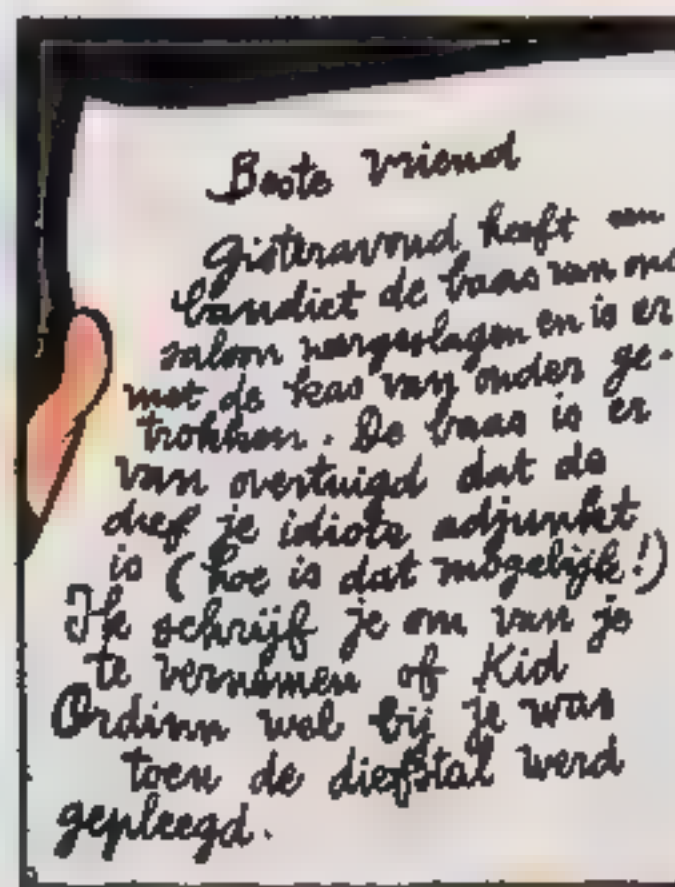 Beste vriend
Gisteravond heeft een
bandiet de baas van ons
saloon neergeslagen en is er
met de kas van onder ge-
trokken. De baas is er
van overtuigd dat de
dief je idiote adjunkt
is (hoe is dat mogelijk!)
Ik schrijf je om van je
te vernemen of Kid
Ordinn wel bij je was
toen de diefstal werd
gepleegd.